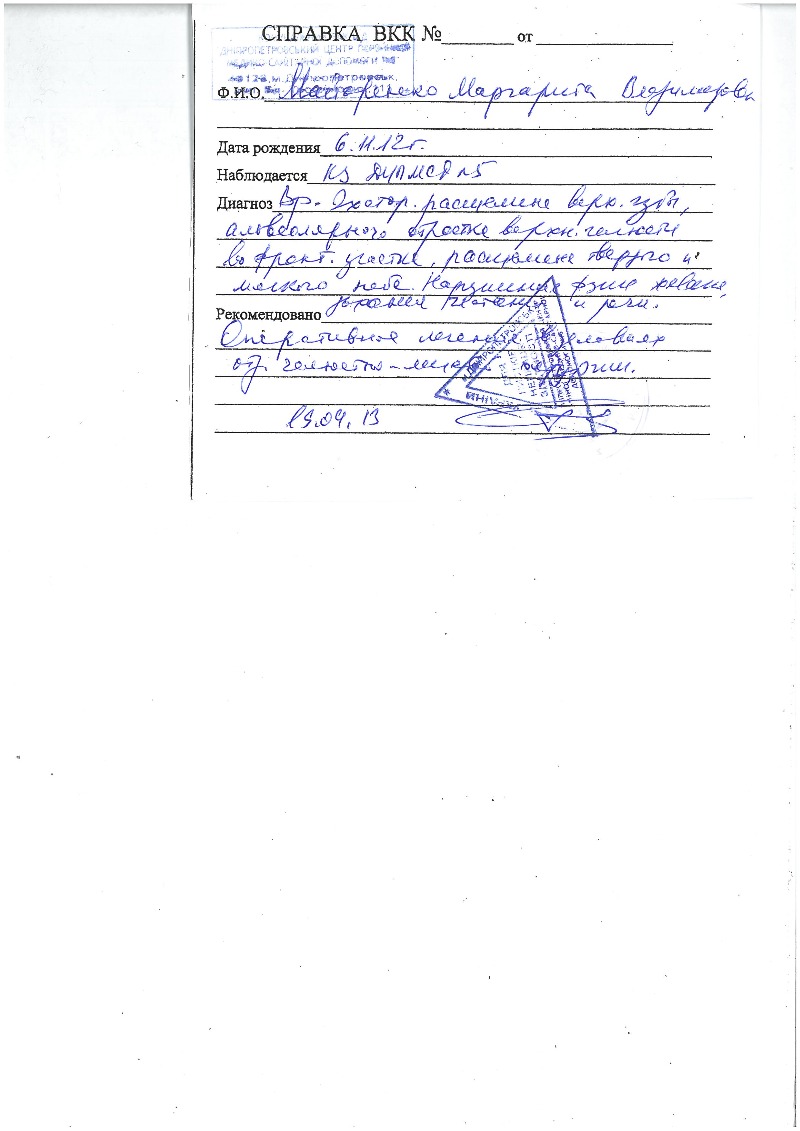 СПРАВКА ВКК № от
ДНІПРОПЕТРОВСЬКИЙ ЦЕНТР ПЕРВИННОЇ
МЕДИКО-САНІТАРНОЇ ДОПОМОГИ №
м.Дніпропетровськ,
Ф.И.О. Маргарита Владимировн
Дата рождения 6.11.12г.
Наблюдается КЗ ДЦПМСД №5
Диагноз Вр. расщелина верх. губы,
альвеолярного отростка верхн. челюсти
во фронт. участке, расщелина твердого и
мягкого неба. Нарушение жевания,
и речи.
Рекомендовано
Оперативное лечение в условиях
отд. челюстно-лиц. хирургии.
19.04.13